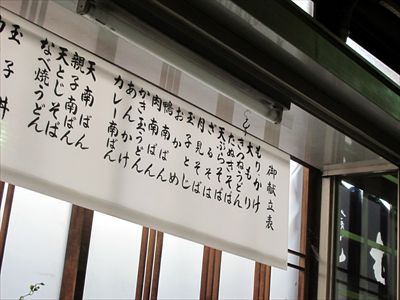 御献立表
もりかけ
大もり
きつねうどん
たぬきそば
天ぷらそば
ざるそば
月見そば
玉子とじ
おかめ
鴨南ばん
肉南ばん
かき玉うどん
あんかけ
カレー南ばん
天南ばん
親子南ばん
天とじそば
なべ焼うどん
玉子丼